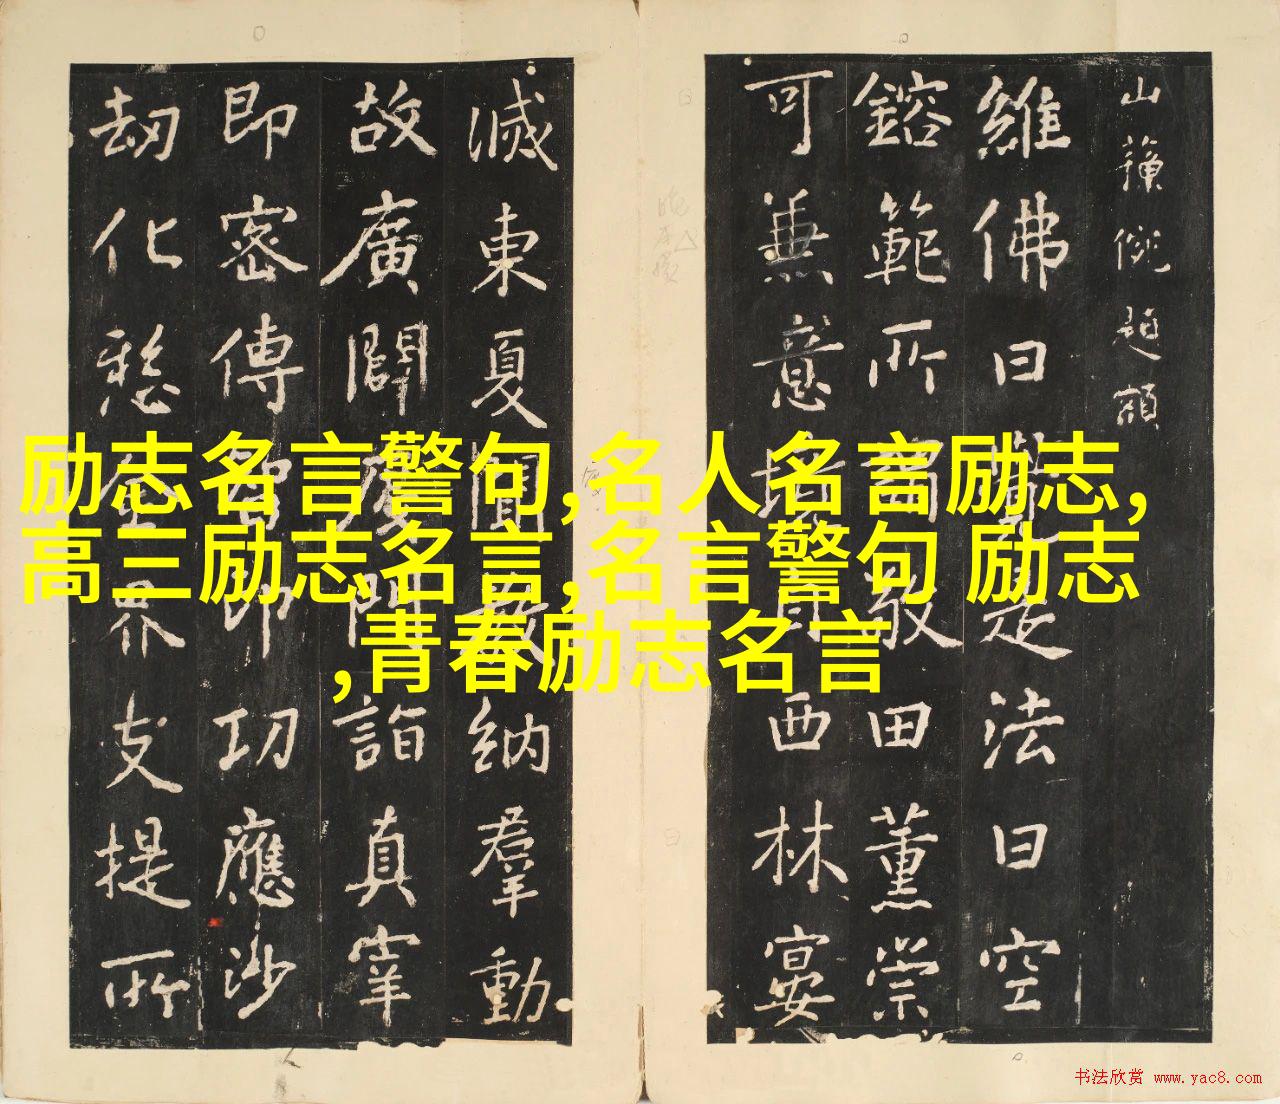 山額
維佛曰是法曰空
鎔範所田薰崇
可兼意西林宴
滅東夏納羣動
故廣闢門詣真宰
即密傳即功應沙
劫化愍界支提所
励志名言警句,名人名言励志,
高三励志名言,名言警句 励志
,青春励志名言
书法欣赏 www.yac8.com